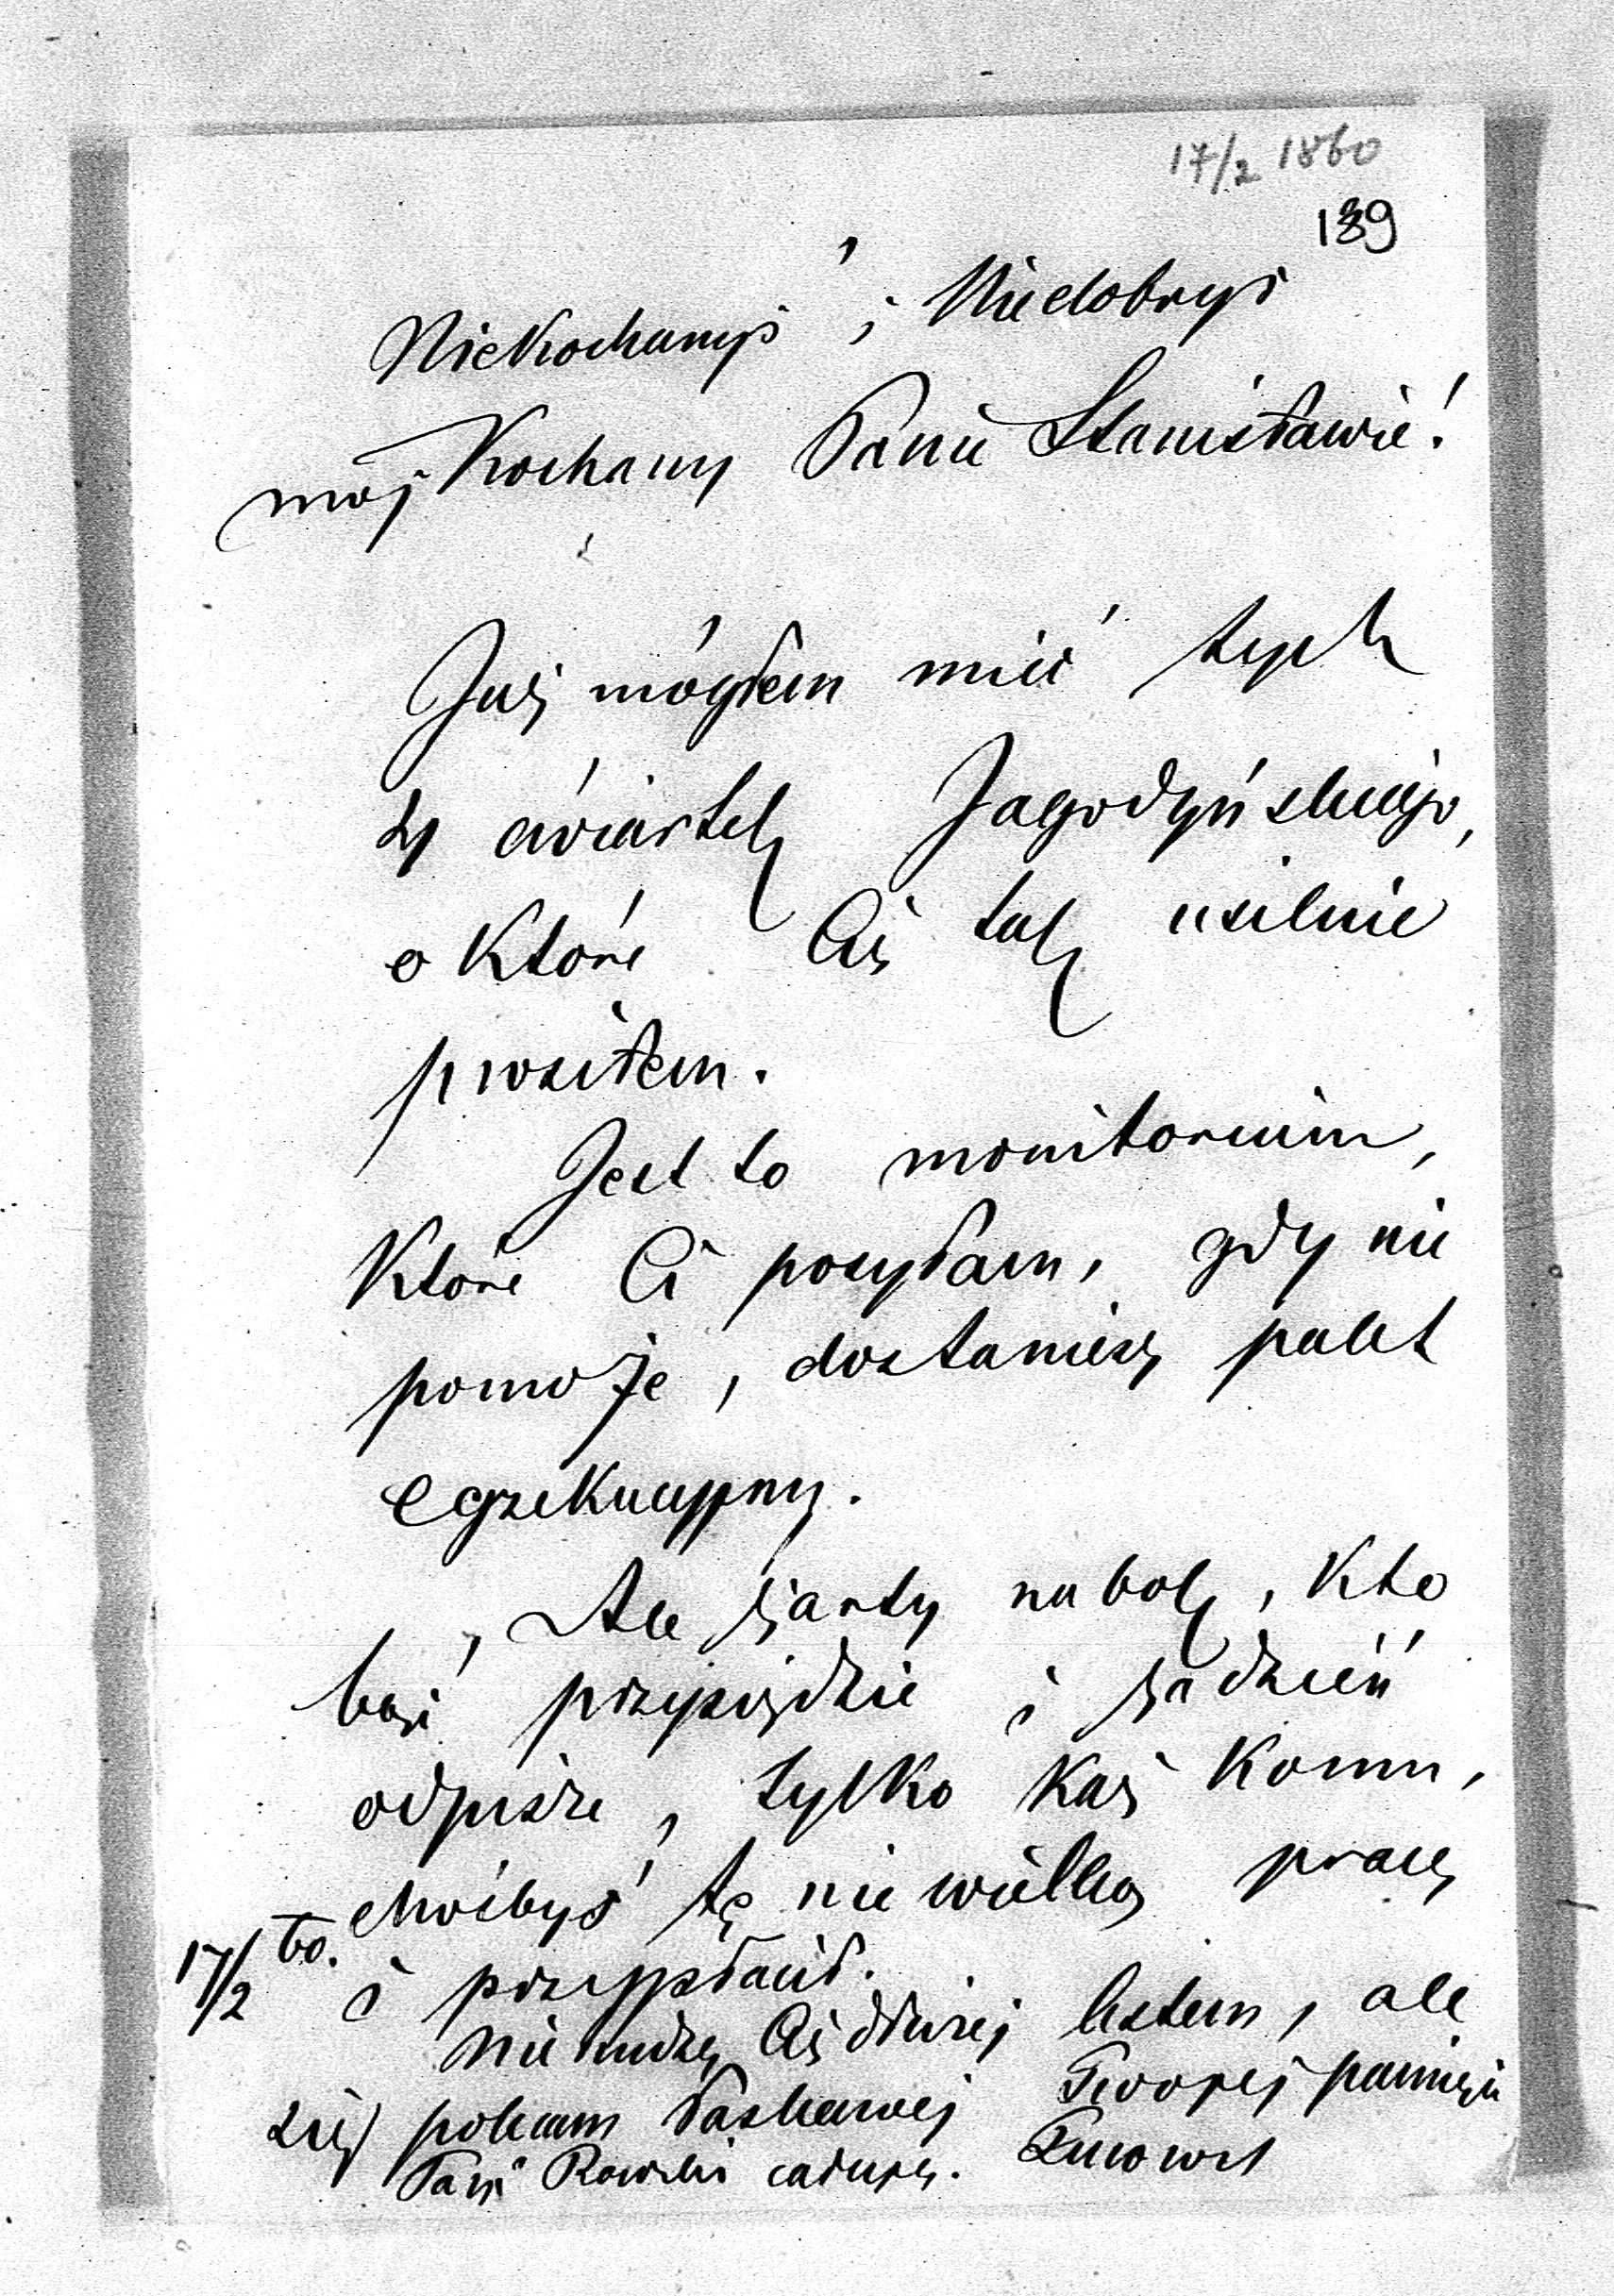 17/2 1860
139
Niekochanyś, Niedobryś
mój Kochany Panie Stanisławie!
Już mógłem mieć tych
4 ćwiartek Jagodyńskiego,
o które Cię tak usilnie
prosiłem.
Jest to monitorium,
które Ci posyłam, gdy nie
pomoże, dostaniesz palet
egzekucyjny.
Ale żarty na bok, kto
boś przysiędzie i za dzień
odpisze, tylko każ komu,
choćbyś tę niewielką pracę
17/2 60. i przypłacił.
Nie nudzę Cię dłużej listem, ale
się polecam łaskawej Twojej pamięci
Pani Rączki całuję.